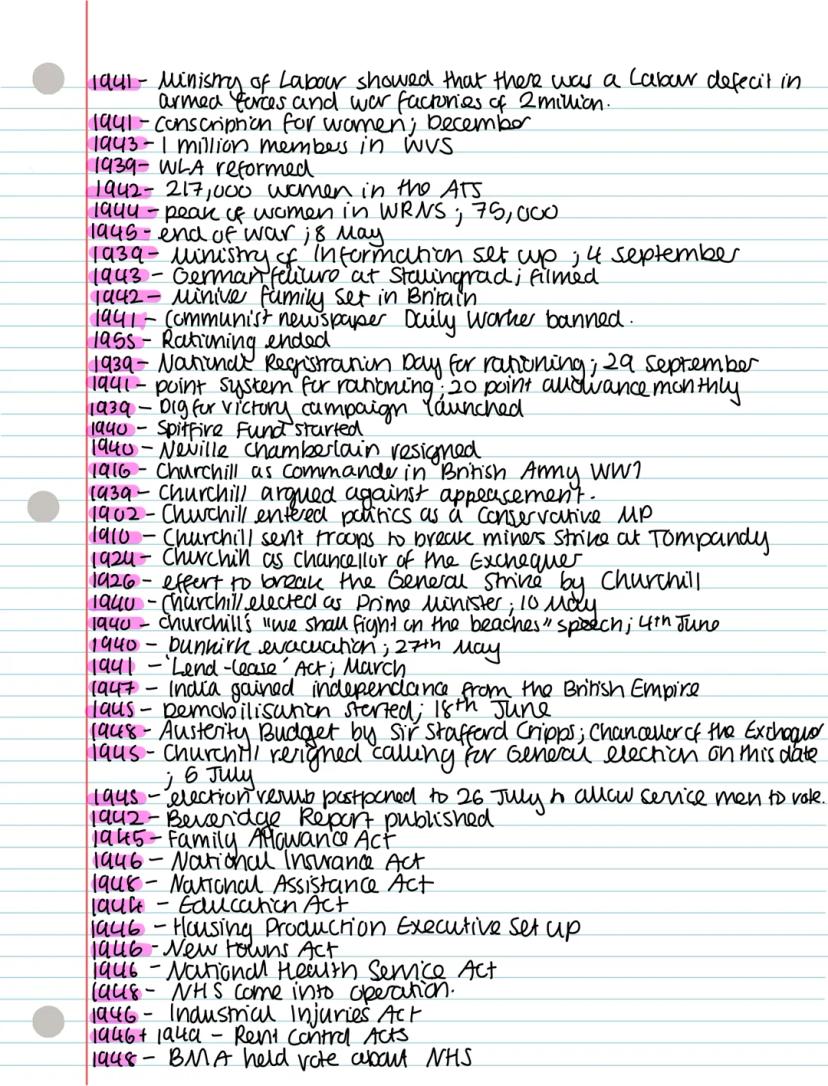 1941 - Ministry of Labour showed that there was a Labour defecit in
armed forces and war factories of 2 million.
1941 - conscription for women; December
1943 - 1 million members in WVS
1939 - WLA reformed
1942 - 217,000 women in the ATS
1944 - peak of women in WRNS; 75,000
1945 - end of war; 8 May
1939 - Ministry of Information set up; 4 September
1943 - German failure at Stalingrad; filmed
1942 - Minive family set in Britain
1941 - Communist newspaper Daily Worker banned.
1955 - Rationing ended
1939 - National Registration Day for rationing; 29 September
1941 - point system for rationing; 20 point allowance monthly
1939 - Dig for victory campaign launched
1940 - Spitfire Fund started
1940 - Neville Chamberlain resigned
1916 - Churchill as commander in British Army WW1
1939 - Churchill argued against appeasement.
1902 - Churchill entered politics as a Conservative MP
1910 - Churchill sent troops to break miners strike at Tompandy
1924 - Churchill as Chancellor of the Exchequer
1926 - effort to break the General Strike by Churchill
1940 - Churchill elected as Prime Minister; 10 May
1940 - Churchill's "we shall fight on the beaches" speech; 4th June
1940 - Dunkirk evacuation; 27th May
1941 - 'Lend-lease' Act; March
1947 - India gained independance from the British Empire
1945 - Demobilisation started; 18th June
1948 - Austerity Budget by Sir Stafford Cripps; Chancellor of the Exchequer
1945 - Churchill resigned calling for General election on this date
; 5 July
1945 - election results postponed to 26 July to allow service men to vote.
1942 - Beveridge Report published
1945 - Family Allowance Act
1946 - National Insurance Act
1948 - National Assistance Act
1944 - Education Act
1946 - Housing Production Executive set up
1946 - New towns Act
1946 - National Health Service Act
1948 - NHS come into operation.
1946 - Industrial Injuries Act
1946 + 1949 - Rent Control Acts
1948 - BMA held vote about NHS